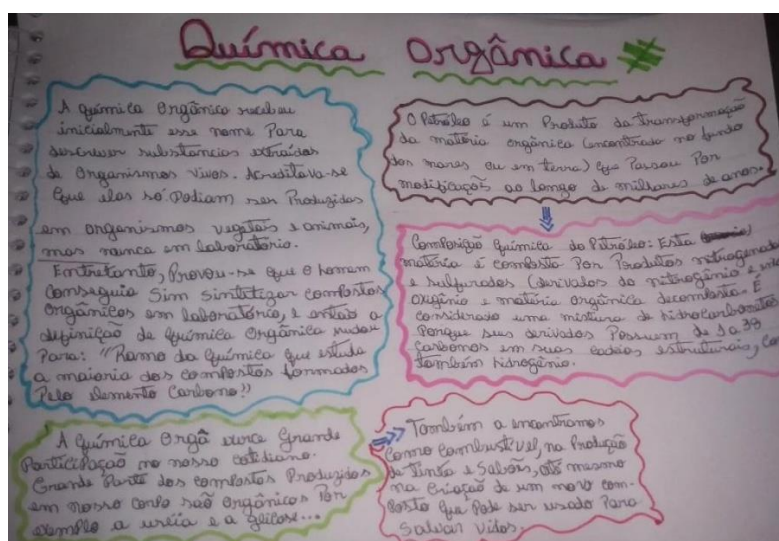 Química Orgânica
A química Orgânica recebeu
inicialmente esse nome Para
descrever substancias extraídas
de Organismos vivos. Acreditava-se
que elas só Podiam ser Produzidos
em organismos vegetais e animais,
mas nunca em laboratório.
Entretanto, Provou-se que o homem
conseguia Sim sintetizar compostos
Orgânicos em laboratório, e então a
definição de Química Orgânica mudou
Para: "Ramo da Química que estuda
a maioria dos compostos formados
Pelo elemento Carbono!)
A química Orgâ exerce Grande
Participação no nosso cotidiano.
Grande Parte dos compostos Produzidos
em nosso corpo são Orgânicos Por
exemplo a uréia e a glicose...
O Petróleo é um Produto da transformação
da matéria orgânica (encontrado no fundo
dos mares ou em terra) que Passou Por
modificaçõs ao longo de milhares de anos.
Composição química do Petróleo: Esta
matéria é composta Por Produtos nitrogenados
e sulfurados (derivalos do nitrogênio e
oxigênio e matéria orgânica decomposta. É
considerado uma mistura de hidrocarbonetos
Porque seus derivados Possuem de 1 a 39
Carbonos em suas cadeias estruturais,
também hidrogênio.
Também a encontramos
como combustível, na Produção
de tinta e Sabões, até mesmo
na Criação de um novo com-
posto que Pode ser usado Para
Salvar vidas.